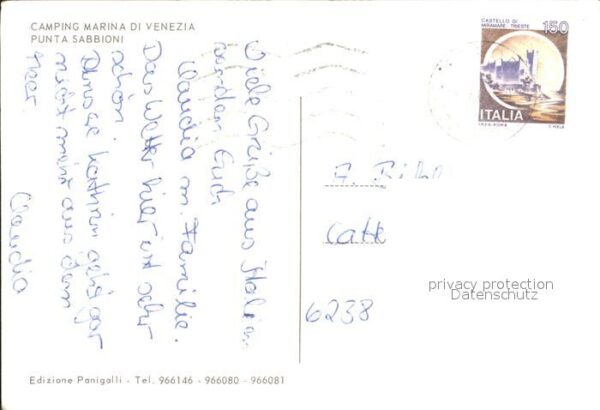 CAMPING MARINA DI VENEZIA
PUNTA SABBIONI
Viele Grüße aus Italien
werden Euch
Claudia m. Familie.
Das Wetter hier ist sehr
schön.
geht gar
nicht mehr aus dem
Meer.
Claudia
CASTELLO DI
MIRAMARE TRIESTE
150
ITALIA
6238
privacy protection
Datenschutz
Edizione Panigalli - Tel. 966146 - 966080 - 966081